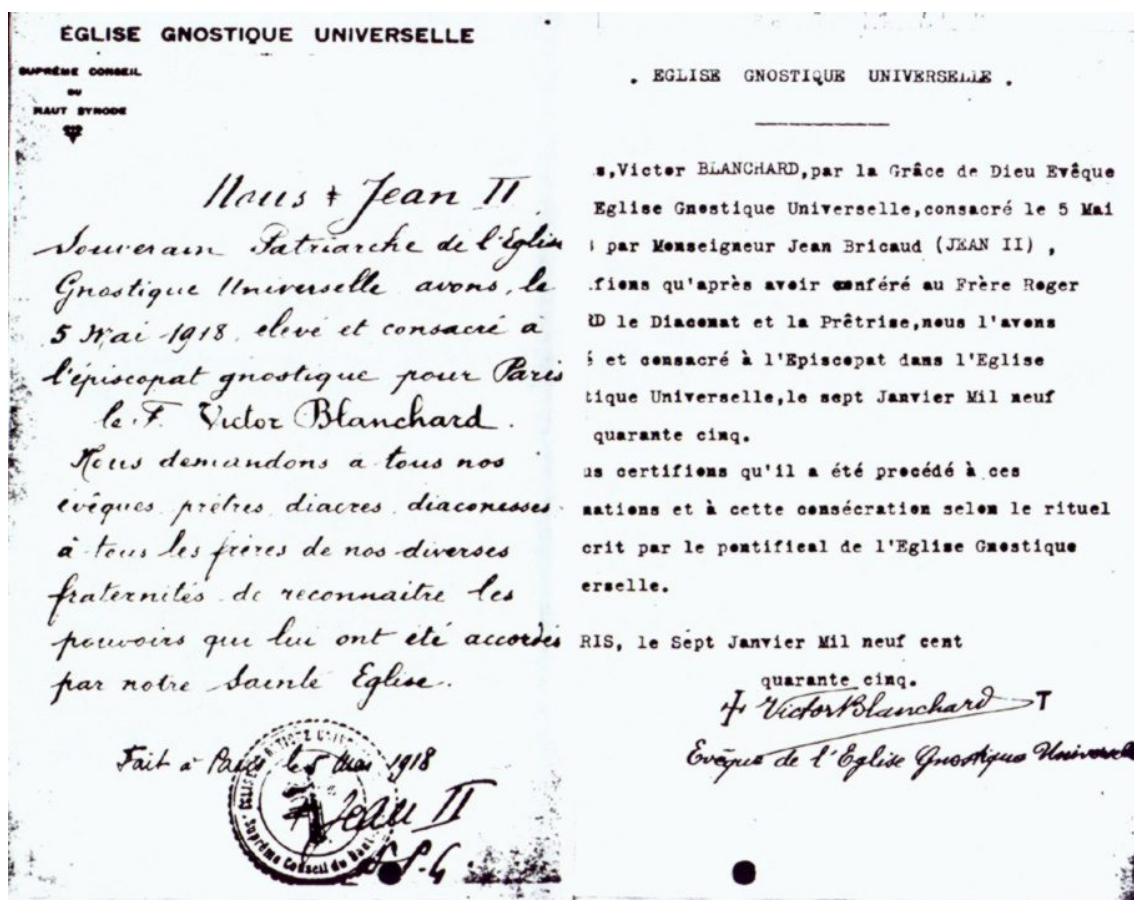 ÉGLISE GNOSTIQUE UNIVERSELLE
SUPRÊME CONSEIL
DU
HAUT SYNODE
Nous ‡ Jean II
Souverain Patriarche de l'Eglise
Gnostique Universelle avons, le
5 Mai 1918, elevé et consacré à
l'épiscopat gnostique pour Paris
le F. Victor Blanchard.
Nous demandons à tous nos
évêques prêtres diacres diaconesses
à tous les frères de nos diverses
fraternités de reconnaitre les
pouvoirs qui lui ont été accordés
par notre Sainte Eglise.
Fait à Paris le 5 Mai 1918
Jean II
Suprême Conseil du Haut
. EGLISE GNOSTIQUE UNIVERSELLE .
s,Victor BLANCHARD,par la Grâce de Dieu Evêque
Eglise Gnostique Universelle,consacré le 5 Mai
par Monseigneur Jean Bricaud (JEAN II) ,
fions qu'après avoir conféré au Frère Roger
RD le Diaconat et la Prêtrise,nous l'avons
et consacré à l'Episcopat dans l'Eglise
tique Universelle,le sept Janvier Mil neuf
quarante cinq.
us certifions qu'il a été procédé à ces
nations et à cette consécration selon le rituel
crit par le pontifical de l'Eglise Gnostique
erselle.
RIS, le Sept Janvier Mil neuf cent
quarante cinq.
‡ Victor Blanchard T
Evêque de l'Eglise Gnostique Universelle